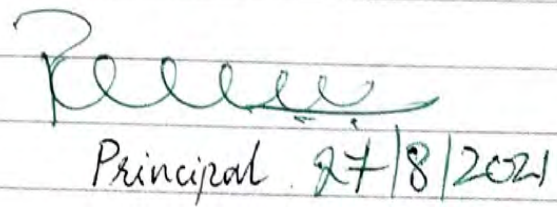 Principal 27/8/2021